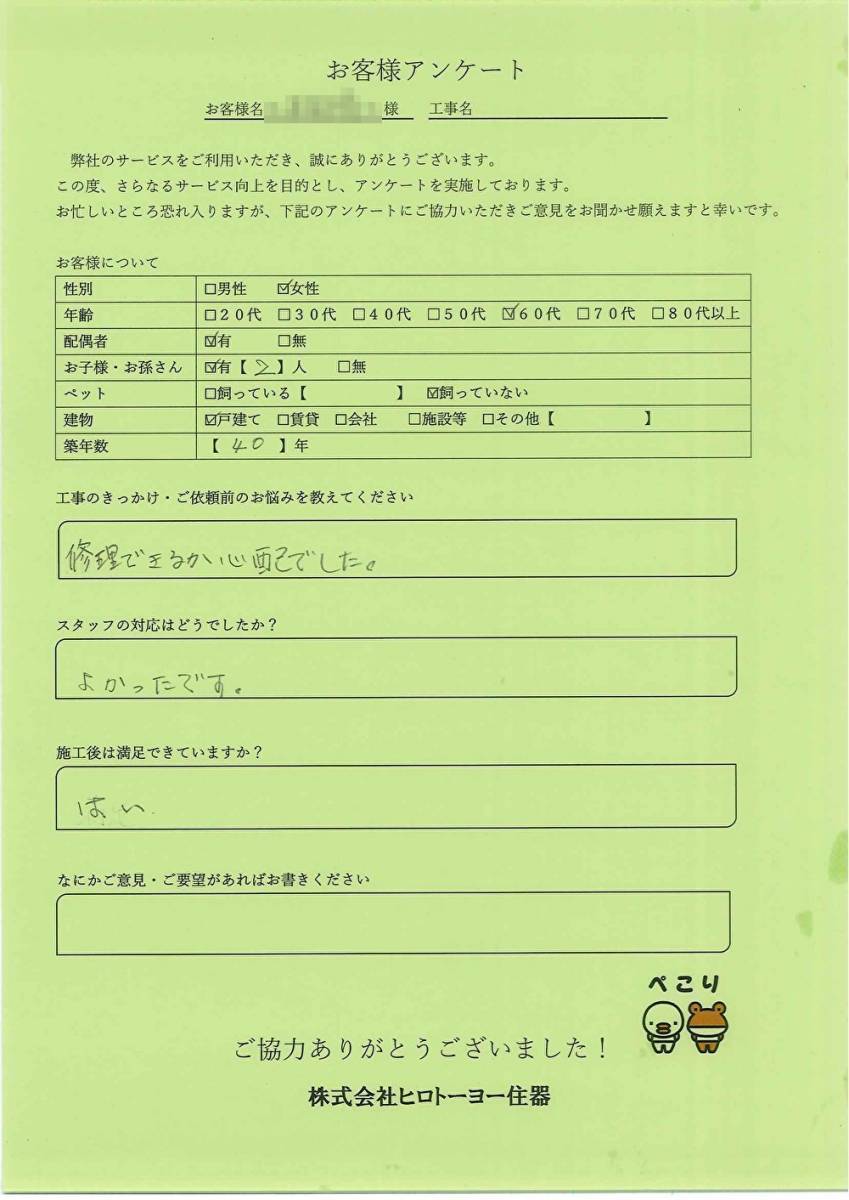 お客様アンケート
お客様名 様 工事名
弊社のサービスをご利用いただき、誠にありがとうございます。
この度、さらなるサービス向上を目的とし、アンケートを実施しております。
お忙しいところ恐れ入りますが、下記のアンケートにご協力いただきご意見をお聞かせ願えますと幸いです。
お客様について
性別 □男性 ☑女性
年齢 □20代 □30代 □40代 □50代 ☑60代 □70代 □80代以上
配偶者 ☑有 □無
お子様・お孫さん ☑有【 2 】人 □無
ペット □飼っている【 】 ☑飼っていない
建物 ☑戸建て □賃貸 □会社 □施設等 □その他【 】
築年数 【 40 】年
工事のきっかけ・ご依頼前のお悩みを教えてください
修理できるかい心配でした。
スタッフの対応はどうでしたか？
よかったです。
施工後は満足できていますか？
はい
なにかご意見・ご要望があればお書きください
ぺこり
ご協力ありがとうございました！
株式会社ヒロトーヨー住器